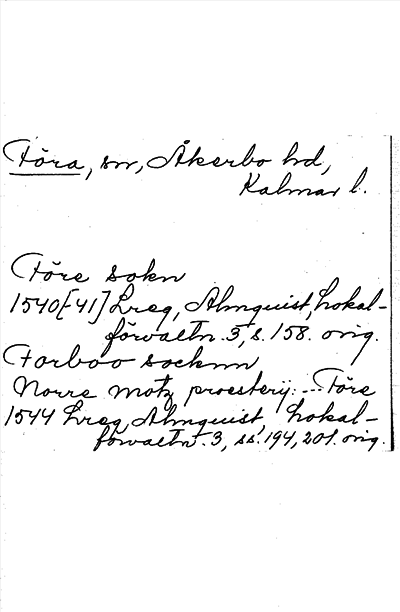 Föra, sn, Åkerbo hd,
Kalmar l.
Före sokn
1540[41] Lreg, Almquist, Lokal-
förvaltn. 3, s. 158. orig.
Forboo socknn
Norre motz proesterij: --- Före
1544 Lreg, Almquist, Lokal-
förvaltn. 3, ss. 194, 201. orig.